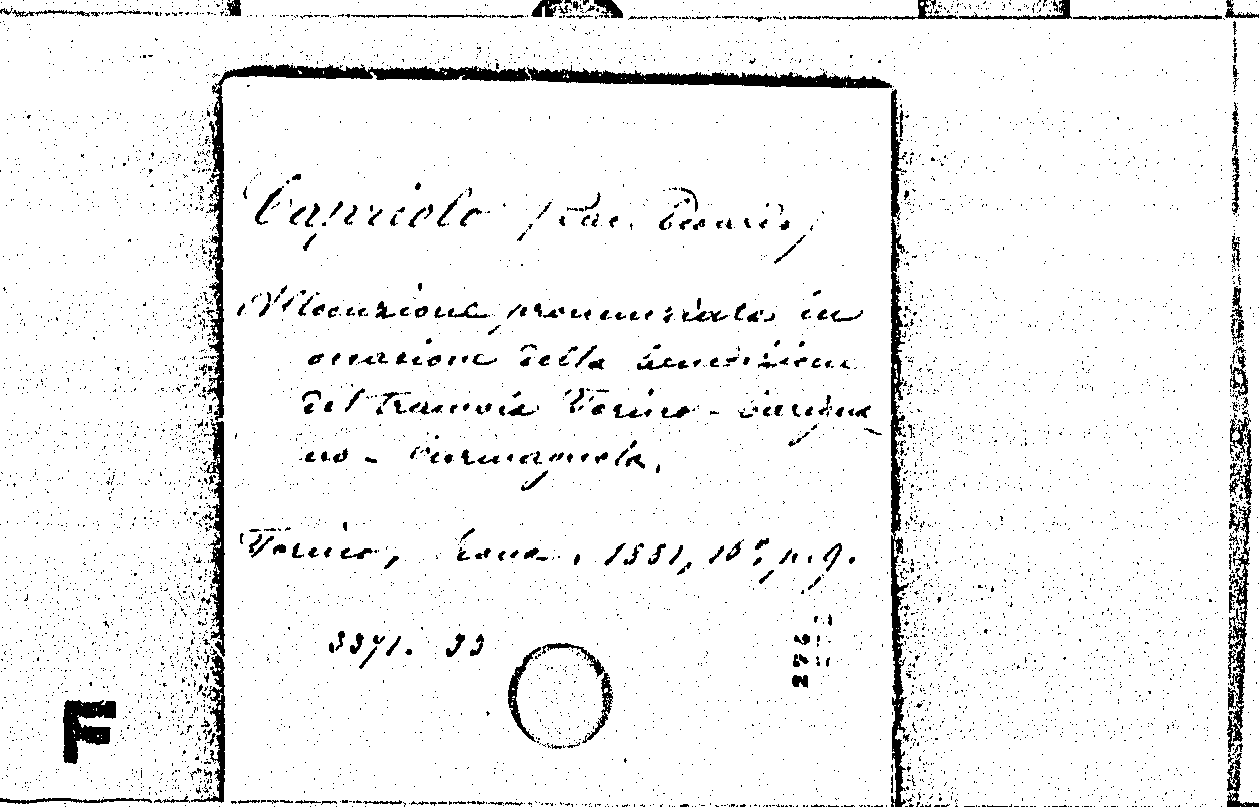 Capriolo (Sac. Cesario)
Allocuzione pronunziata in
occasione della benedizione
del tramvia Torino - Carigna
no - Carmagnola.
Torino, 1881, 16°, p. 9.
3371. 33
F